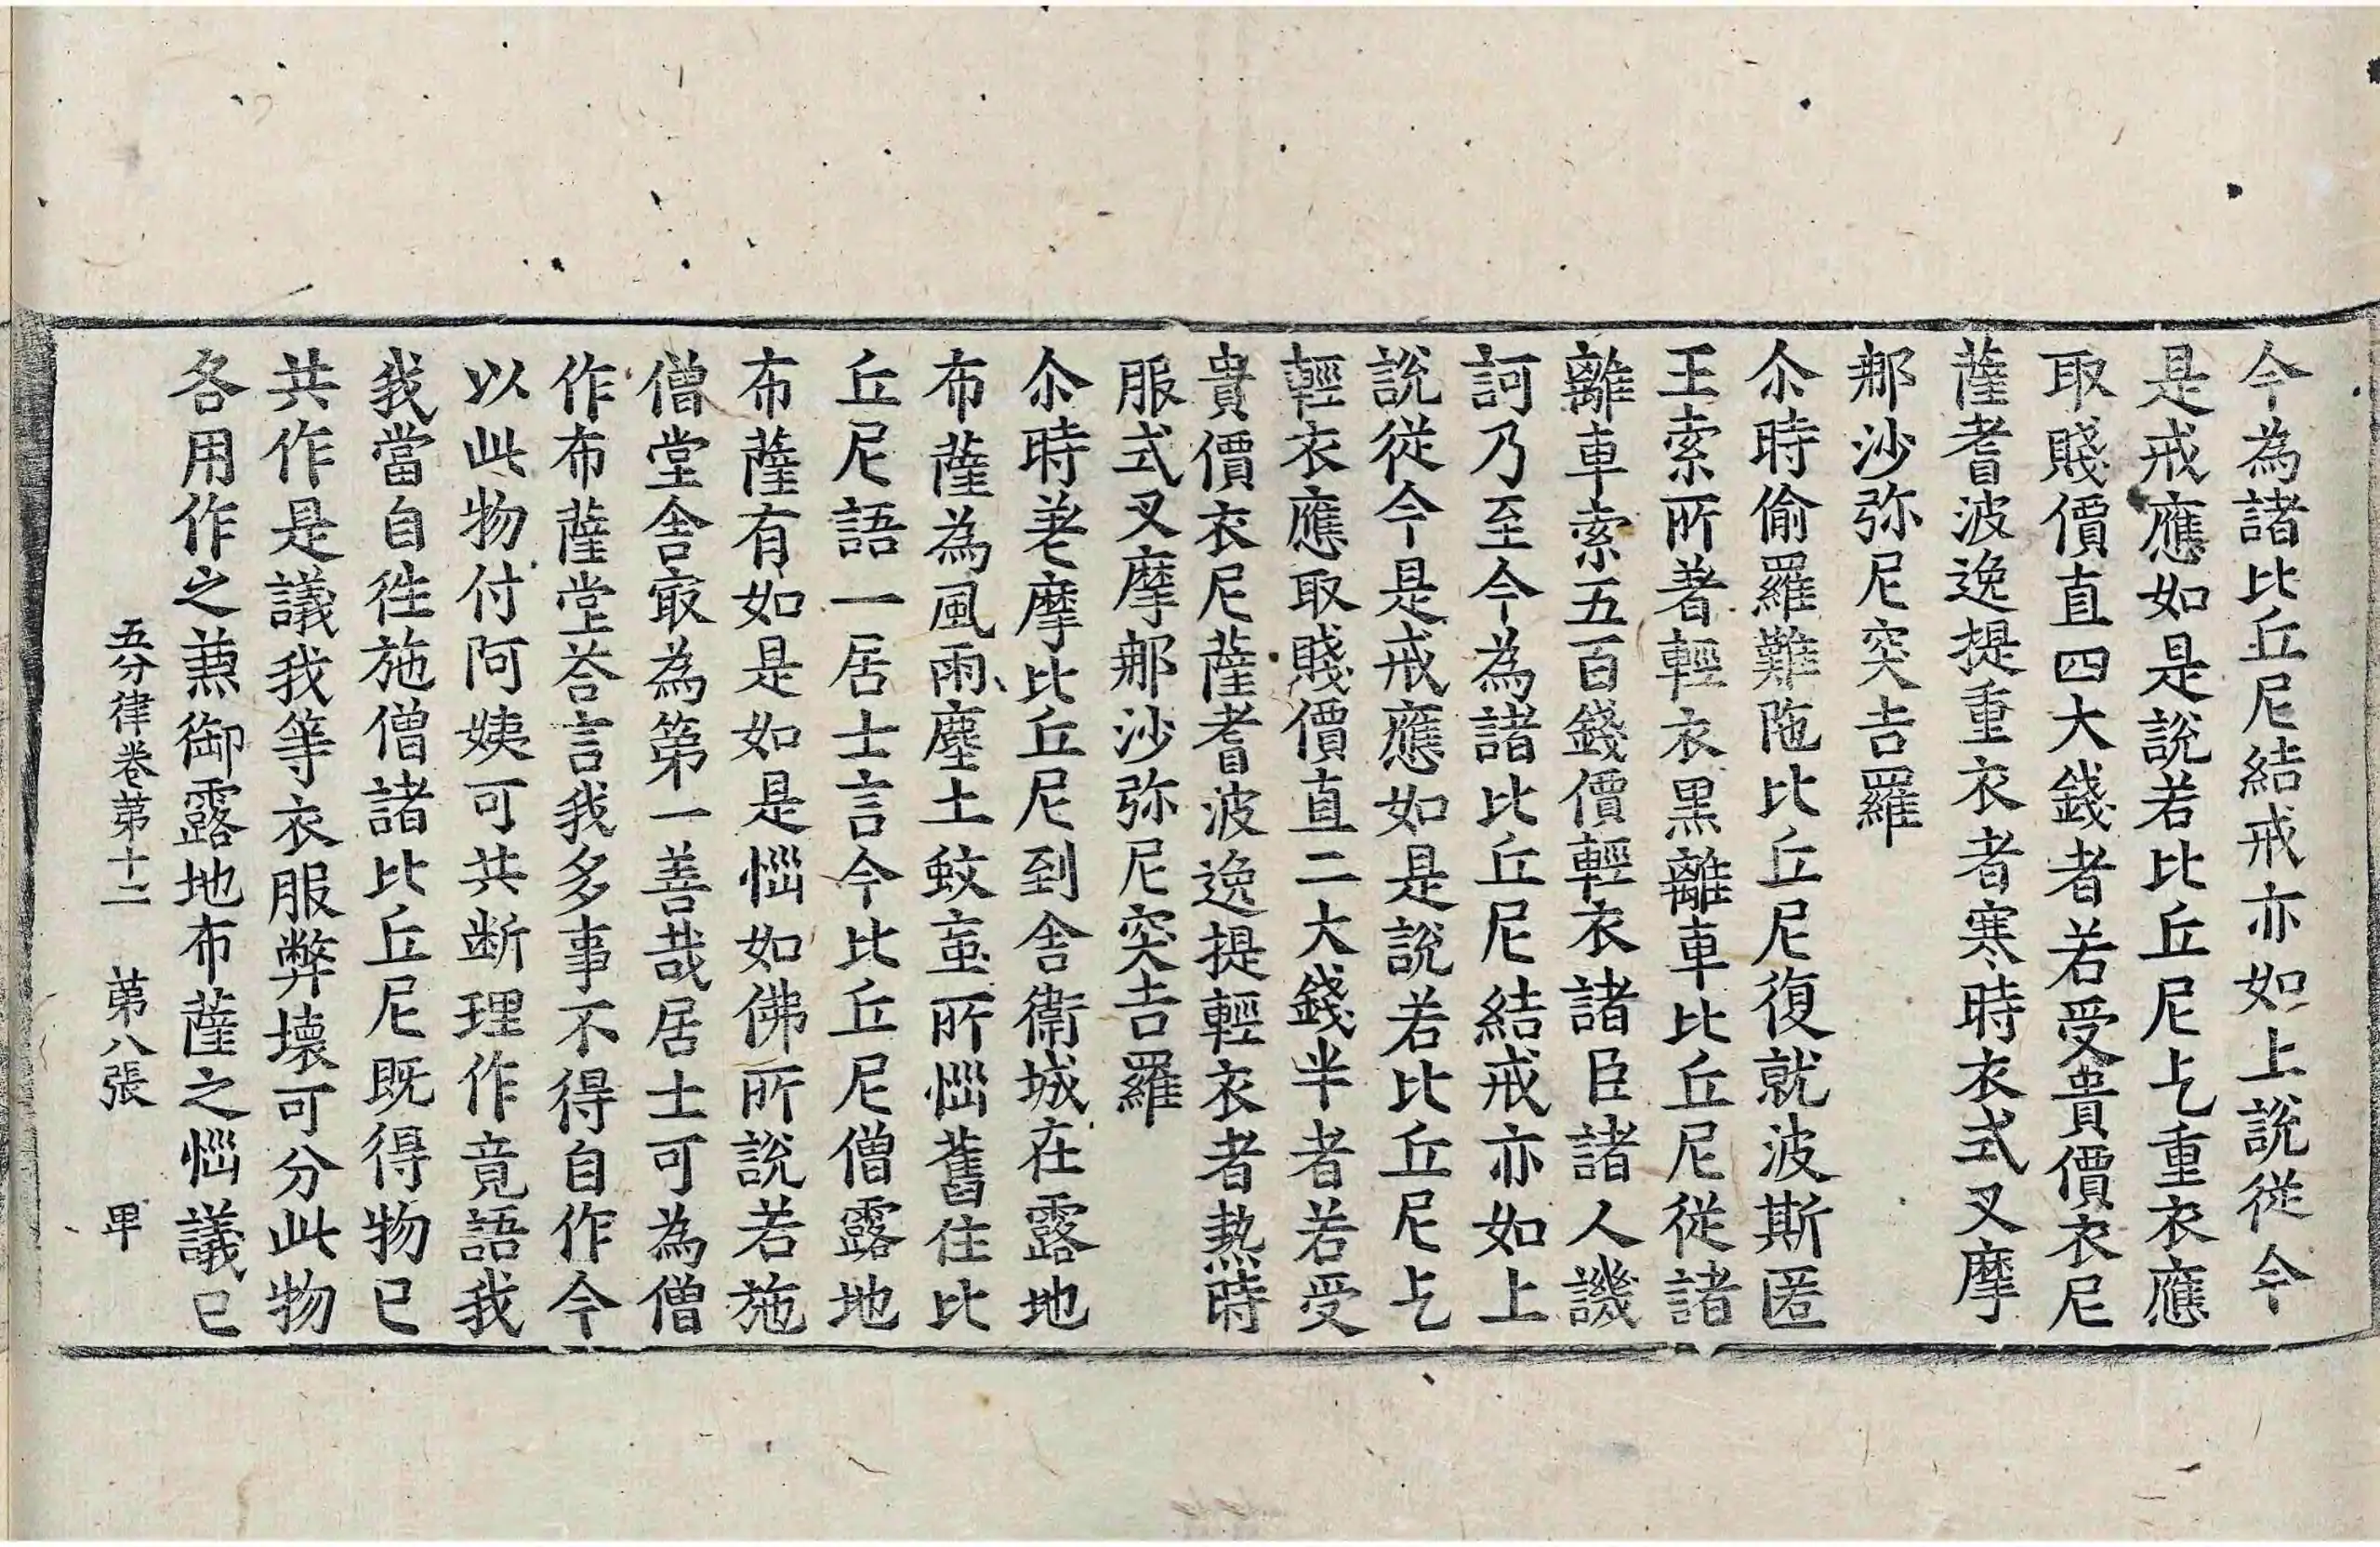 今為諸比丘尼結戒亦如上說從今
是戒應如是說若比丘尼乞重衣應
取賤價直四大錢者若受貴價衣尼
薩耆波逸提重衣者寒時衣式叉摩
那沙弥尼突吉羅
尒時偷羅難陁比丘尼復就波斯匿
王索所著輕衣黑離車比丘尼從諸
離車索五百錢價輕衣諸臣諸人譏
訶乃至今為諸比丘尼結戒亦如上
說從今是戒應如是說若比丘尼乞
輕衣應取賤價直二大錢半者若受
貴價衣尼薩耆波逸提輕衣者熱時
服式叉摩那沙弥尼突吉羅
尒時差摩比丘尼到舍衛城在露地
布薩為風雨塵土蚊䖟所惱舊住比
丘尼語一居士言今比丘尼僧露地
布薩有如是如是惱如佛所說若施
僧堂舍㝡為第一善哉居士可為僧
作布薩堂荅言我多事不得自作今
以此物付阿姨可共断理作竟語我
我當自往施僧諸比丘尼既得物已
共作是議我等衣服弊壞可分此物
各用作之䕭御露地布薩之惱議已
五分律卷第十二　第八張　甲